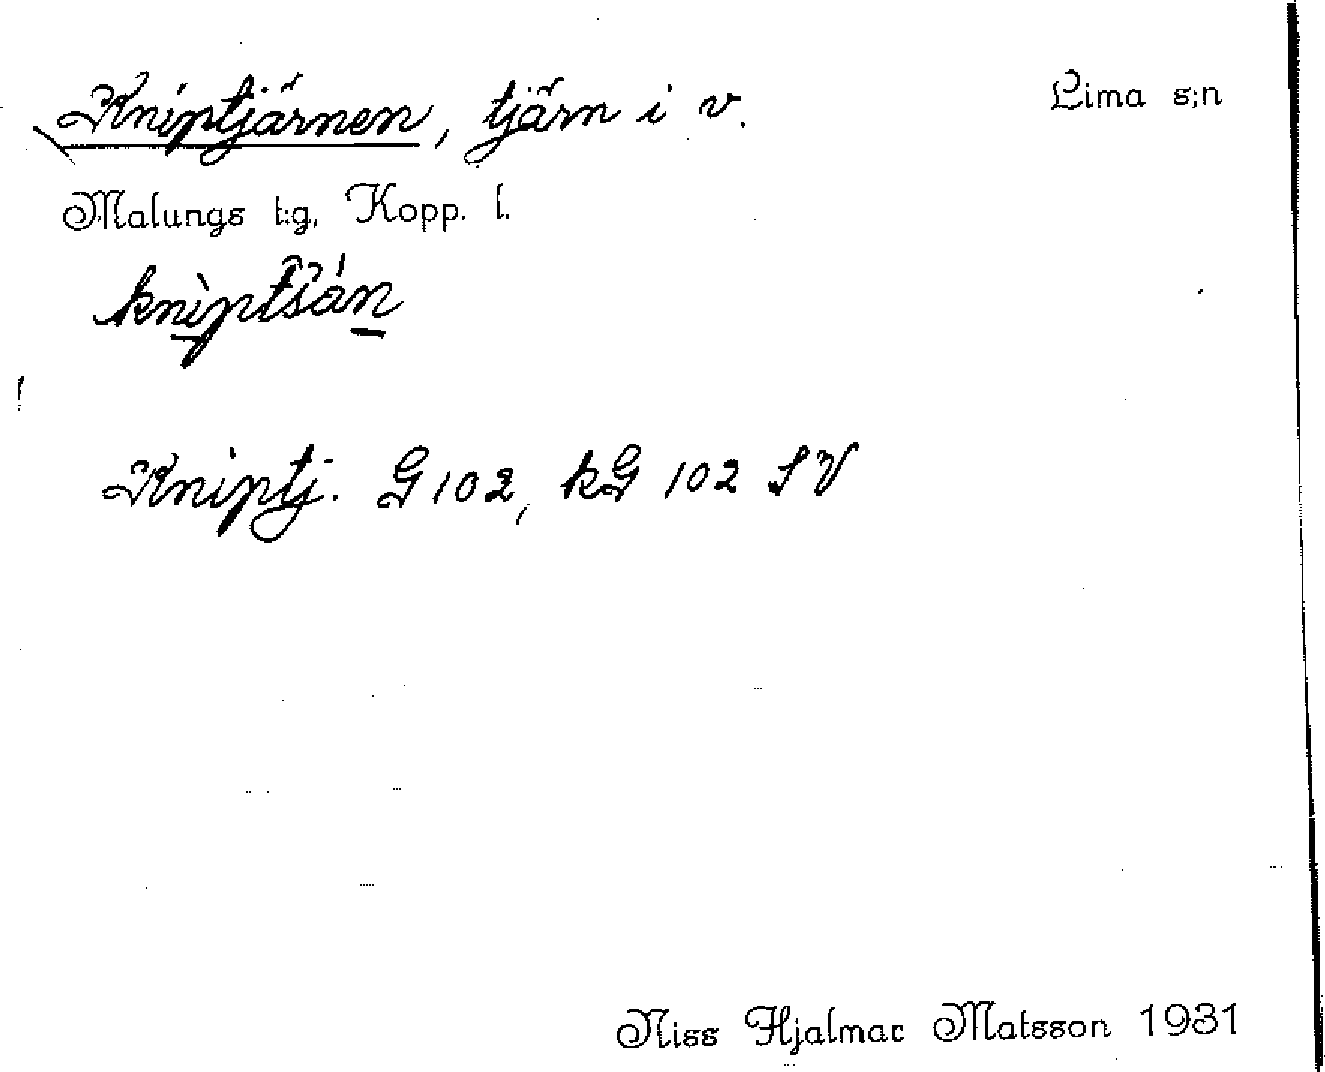 Kniptjärnen, tjärn i v. Lima s:n
Malungs t:g, Kopp. l.
Kniptj. G 102, kG 102 SV
Niss Hjalmar Matsson 1931